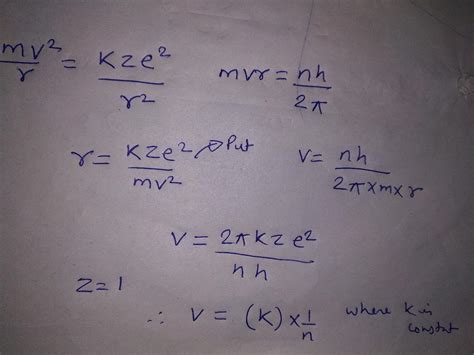 mv²/r = Kze²/r²   mvr = nh/2π
r = Kze²/mv² → Put   v = nh/2π×m×r
v = 2πkze²/nh
z=1
∴ v = (k)×1/n   where k is constnt